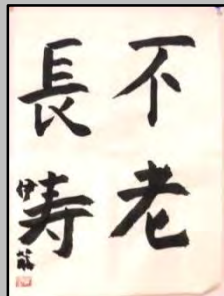 不老
長寿
伊